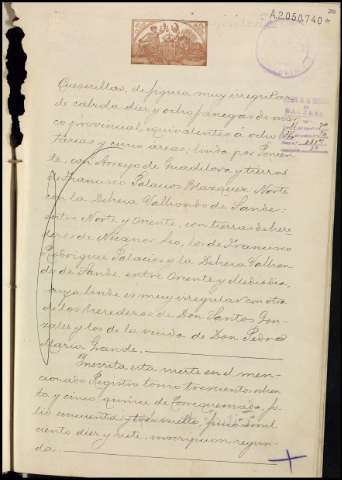 A2.050.740
de figura muy irregular
de cabida diez y ocho fanegas de mar
co provincial equivalentes á ocho hec
táreas y cinco áreas; linda por Ponien
te, con Arroyo de Guadiloso y tierras
de Francisco Palacios Blazquez. Norte
con la Dehesa Valhondo de Sande:
entre Norte y Oriente, con tierras de here
deros de Nicanor los de Francisco
Rodriguez Palacios y la Dehesa Valhon
do de Sande entre Oriente y Mediodia,
cuya linde es muy irregular con otra
de los herederos de Don Santos Gon
zalez y los de la viuda de Don Pedro
Maria Grande.
Inscrita esta suerte en el men
cionado Registro tomo trescientos ochen
ta y cinco quince de Torrequemada, fo
lio cincuenta y tres vuelto, finca
ciento diez y siete, inscripcion segun
da.